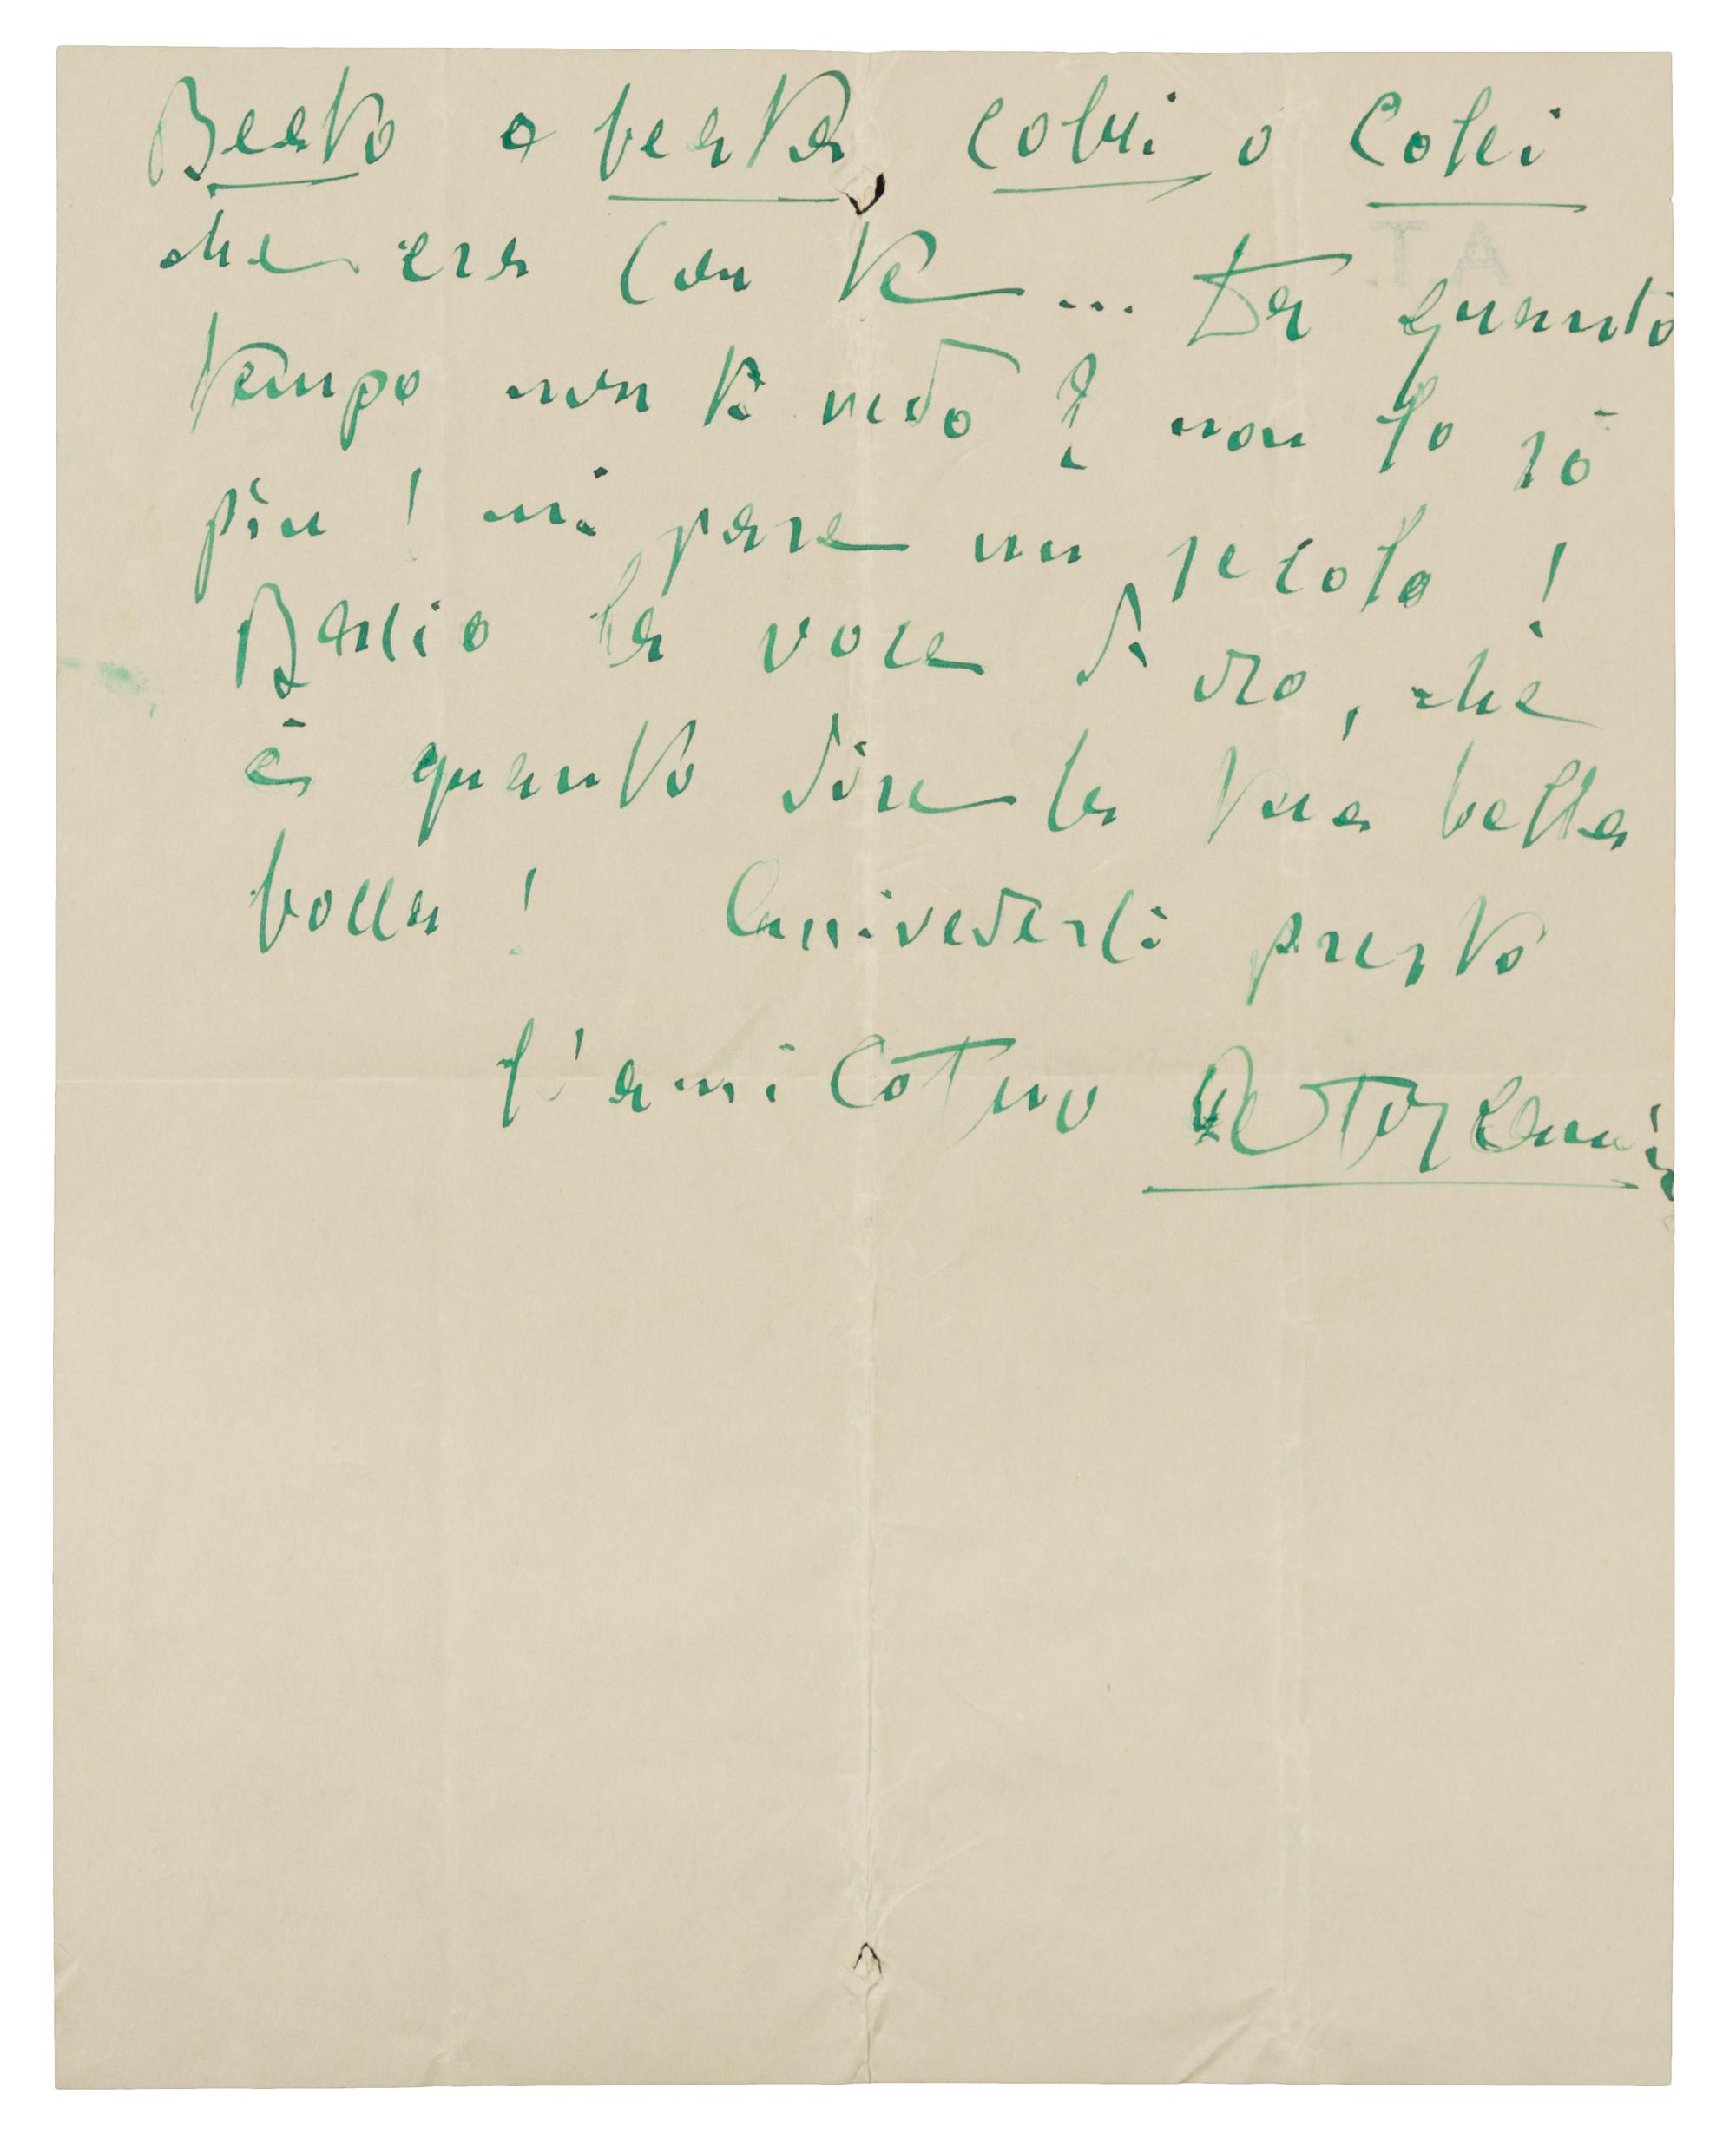 Beato o beata, colui o colei
che era con te... Da quanto
tempo non ti vedo? non lo sò
piu! mi pare un secolo!
Bacio la voce d'oro, che
è quanto dire la tua bella
bocca! Arrivederci presto
l'amico tuo AToscanini
A.T.